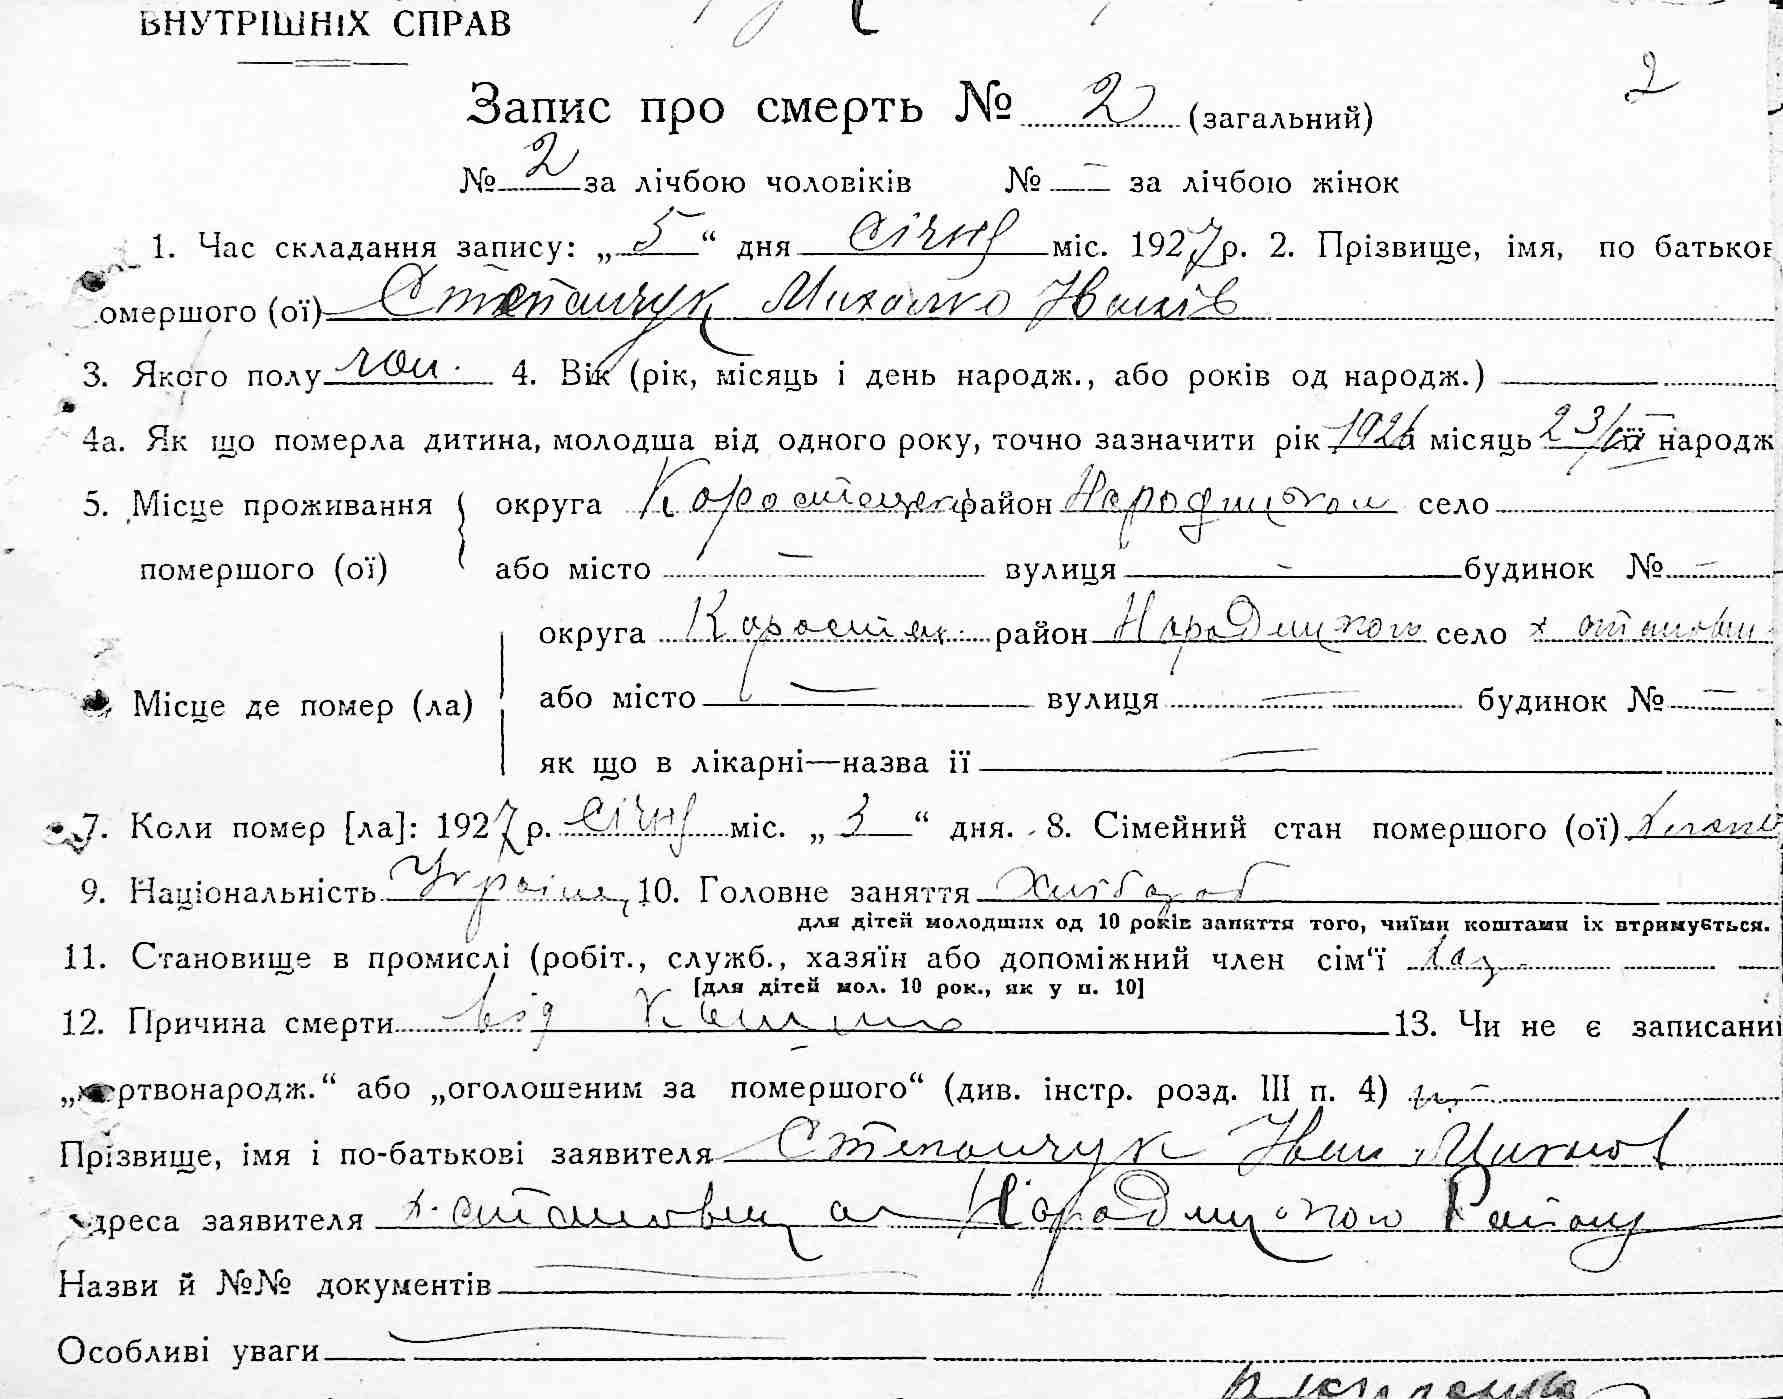 ВНУТРІШНІХ СПРАВ
2
Запис про смерть № 2 (загальний)
№ 2 за лічбою чоловіків № — за лічбою жінок
1. Час складання запису: „5“ дня Січня міс. 1927 р. 2. Прізвище, імя, по батьков
омершого (ої) Степанчук Михалко Іванів
3. Якого полу чол. 4. Вік (рік, місяць і день народж., або років од народж.)
4а. Як що померла дитина, молодша від одного року, точно зазначити рік 1926 місяць 23/ її народж
5. Місце проживання округа Коростецьк район Народицьком село
помершого (ої) або місто — вулиця — будинок № —
округа Коростен. район Народицького село х отановищ
Місце де помер (ла) або місто — вулиця — будинок № —
як що в лікарні—назва її —
7. Коли помер [ла]: 1927 р. Січня міс. „3“ дня. 8. Сімейний стан помершого (ої)
9. Національність Україн. 10. Головне заняття Хлібороб
для дітей молодших од 10 років заняття того, чиїми коштами їх втримується.
11. Становище в промислі (робіт., служб., хазяїн або допоміжний член сім‘ї хаз.
[для дітей мол. 10 рок., як у п. 10]
12. Причина смерти від Кашлю 13. Чи не є записани
„мертвонародж.“ або „оголошеним за помершого“ (див. інстр. розд. III п. 4)
Прізвище, імя і по-батькові заявителя Степанчук Іван
дреса заявителя х. Народицького Району
Назви й №№ документів —
Особливі уваги —